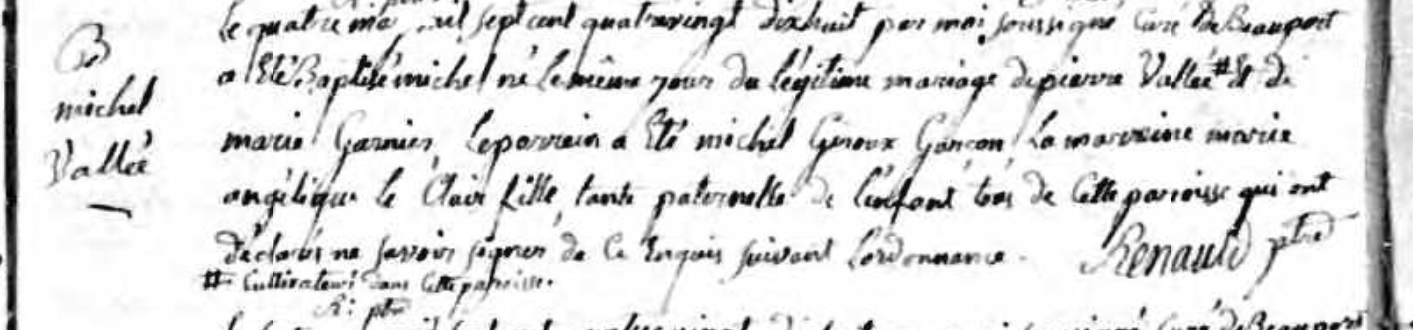 B
michel
Vallée
Le quatre mai mil sept cent quatrevingt dixhuit par moi soussigné Curé de Beauport
a Eté Baptisé michel né le même jour du légitime mariage de pierre Vallée # Et de
marie Garnier, Le parrein a Eté michel Giroux Garçon La marreine marie
angélique le Clair fille, tante paternelle de l'enfant tous de Cette paroisse qui ont
déclarés ne savoir signer de Ce Enquis suivant L'ordonnance. Renauld ptre
# Cultivateur dans Cette paroisse.
R: ptre